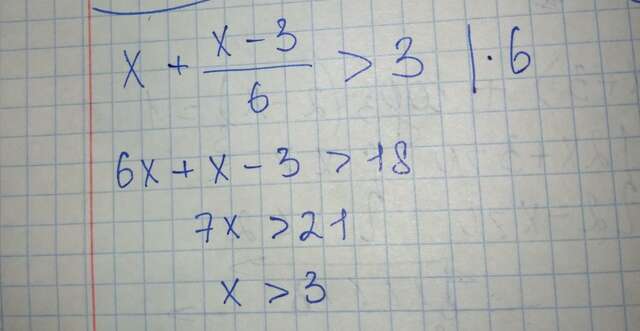 x + \frac{x - 3}{6} > 3 | · 6
6x + x - 3 > 18
7x > 21
x > 3